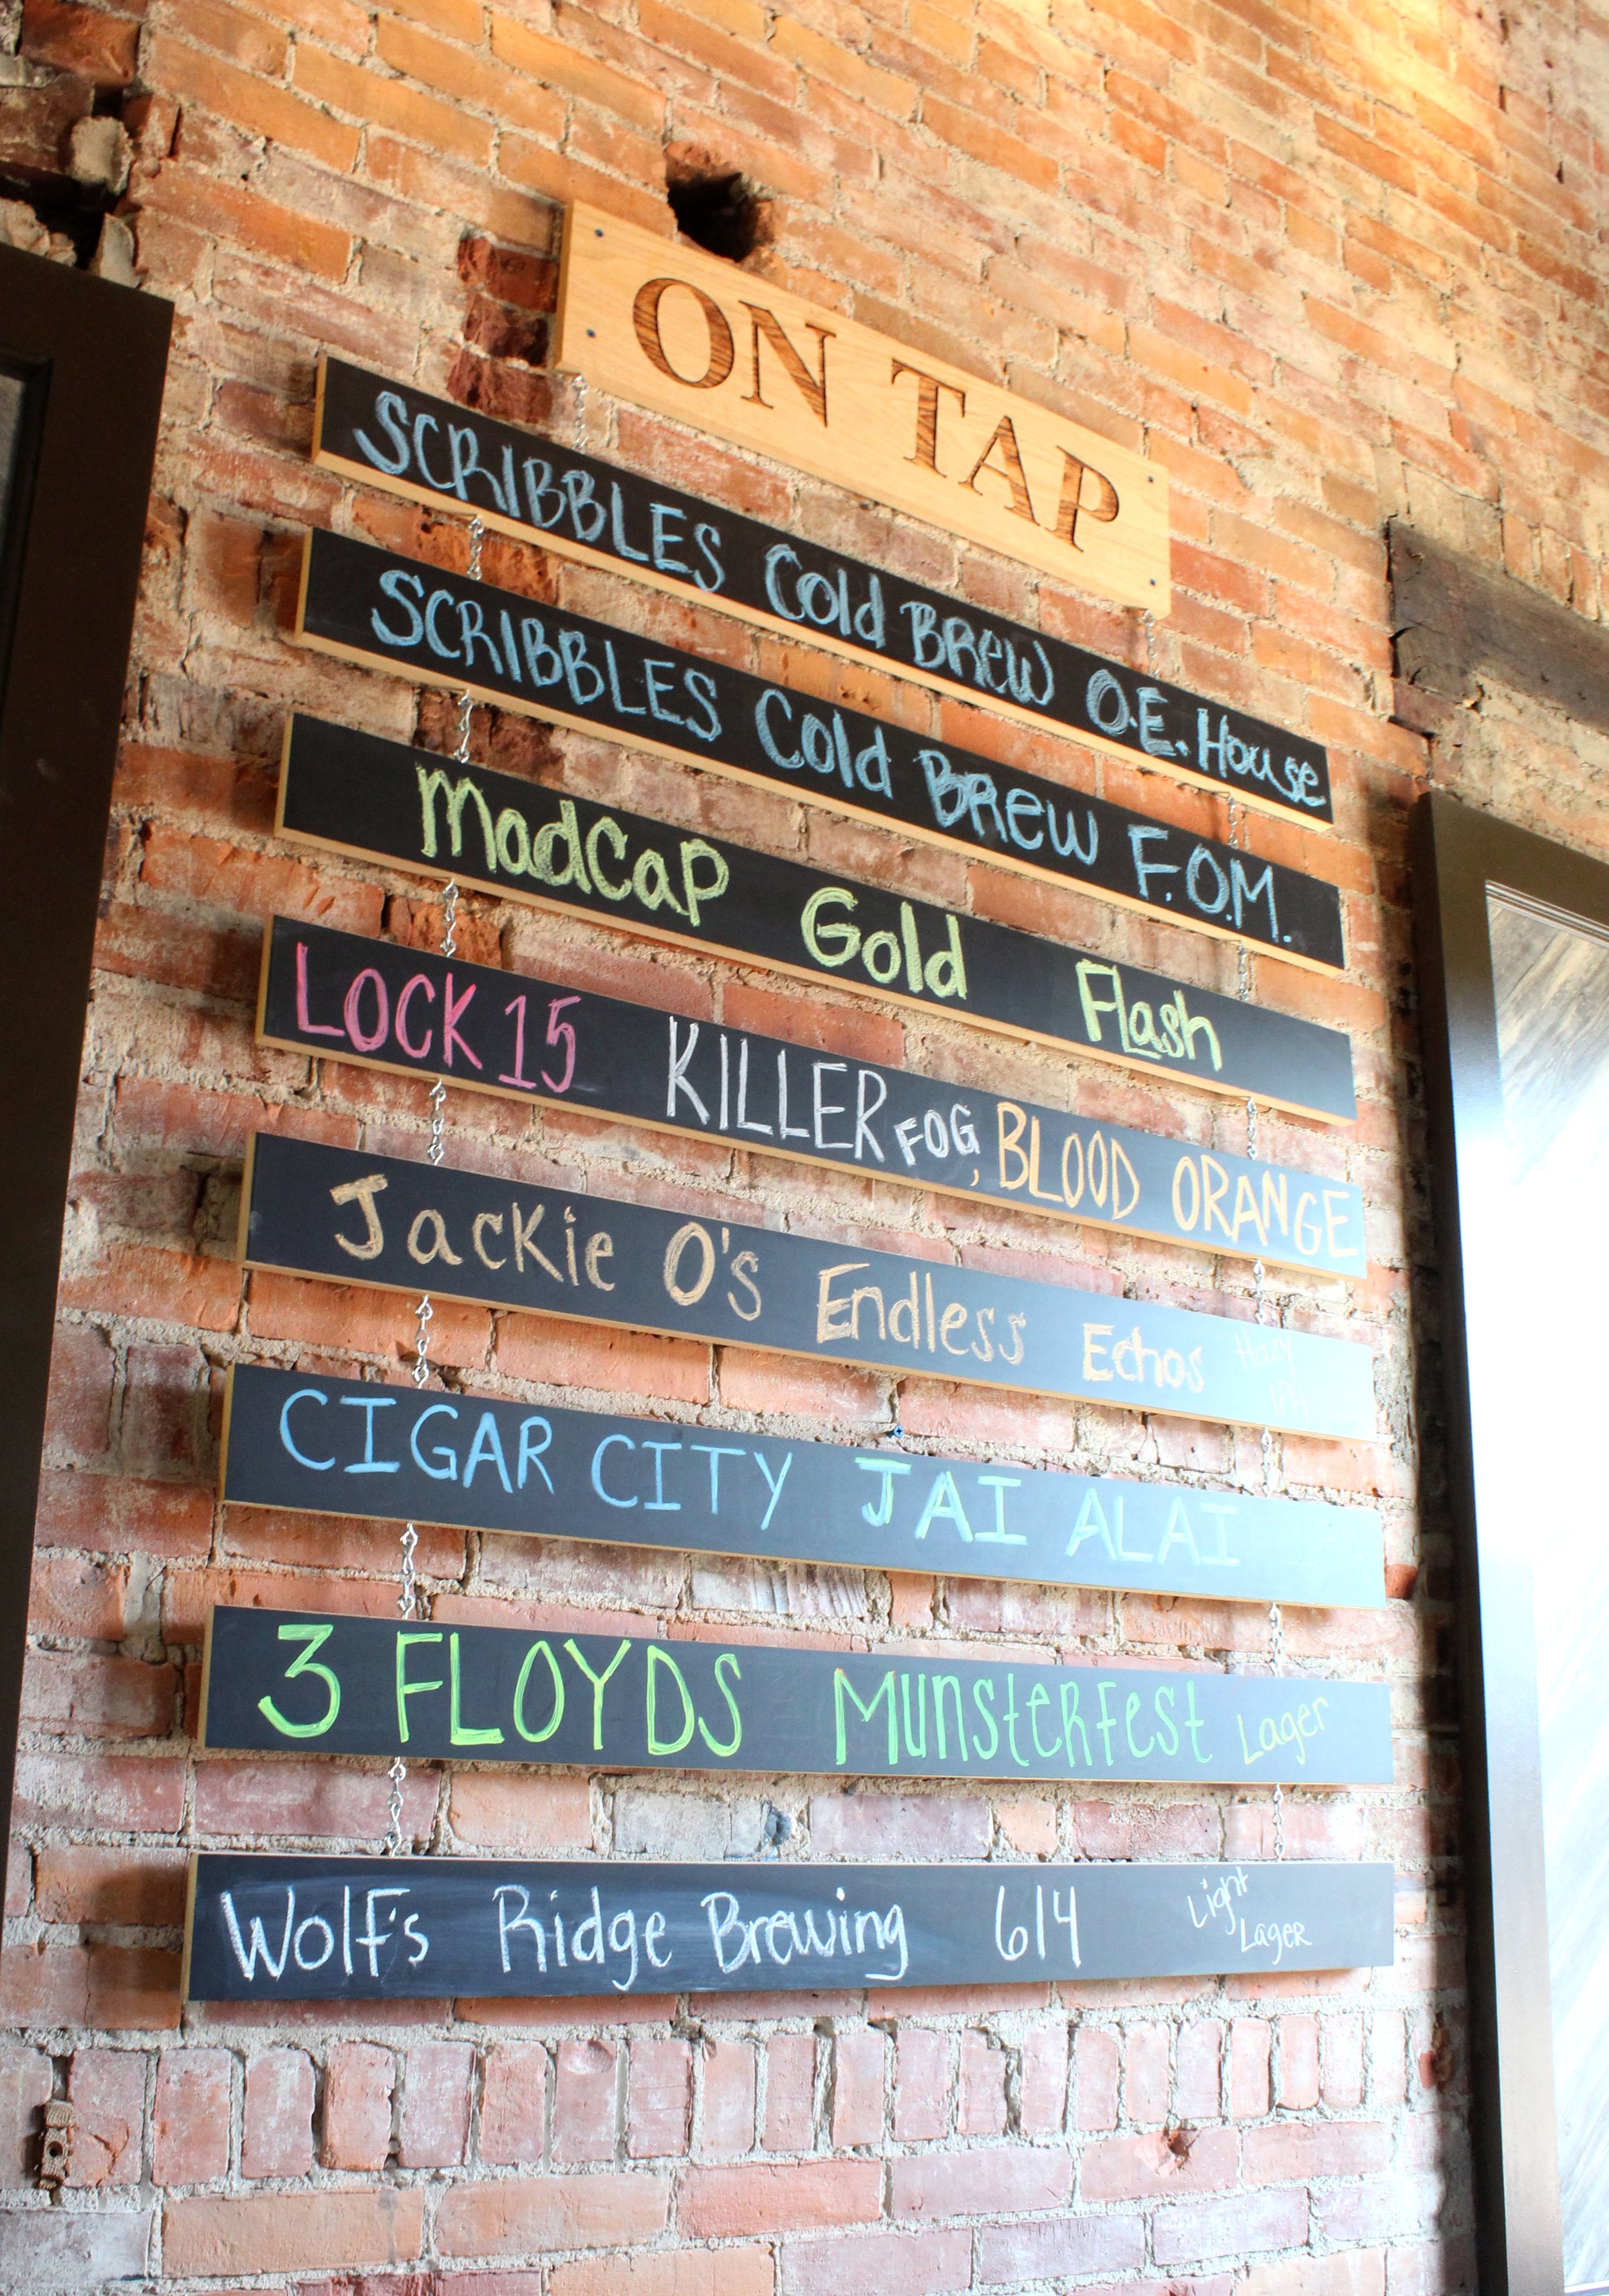 ON TAP
SCRIBBLES Cold BREW O.E. House
SCRIBBLES Cold BREW F.O.M.
MadCaP Gold Flash
LOCK 15 KILLER FOG, BLOOD ORANGE
Jackie O's Endless Echos Hazy
CIGAR CITY JAI ALAI
3 FLOYDS MunsterFest Lager
Wolf's Ridge Brewing 614 Light Lager